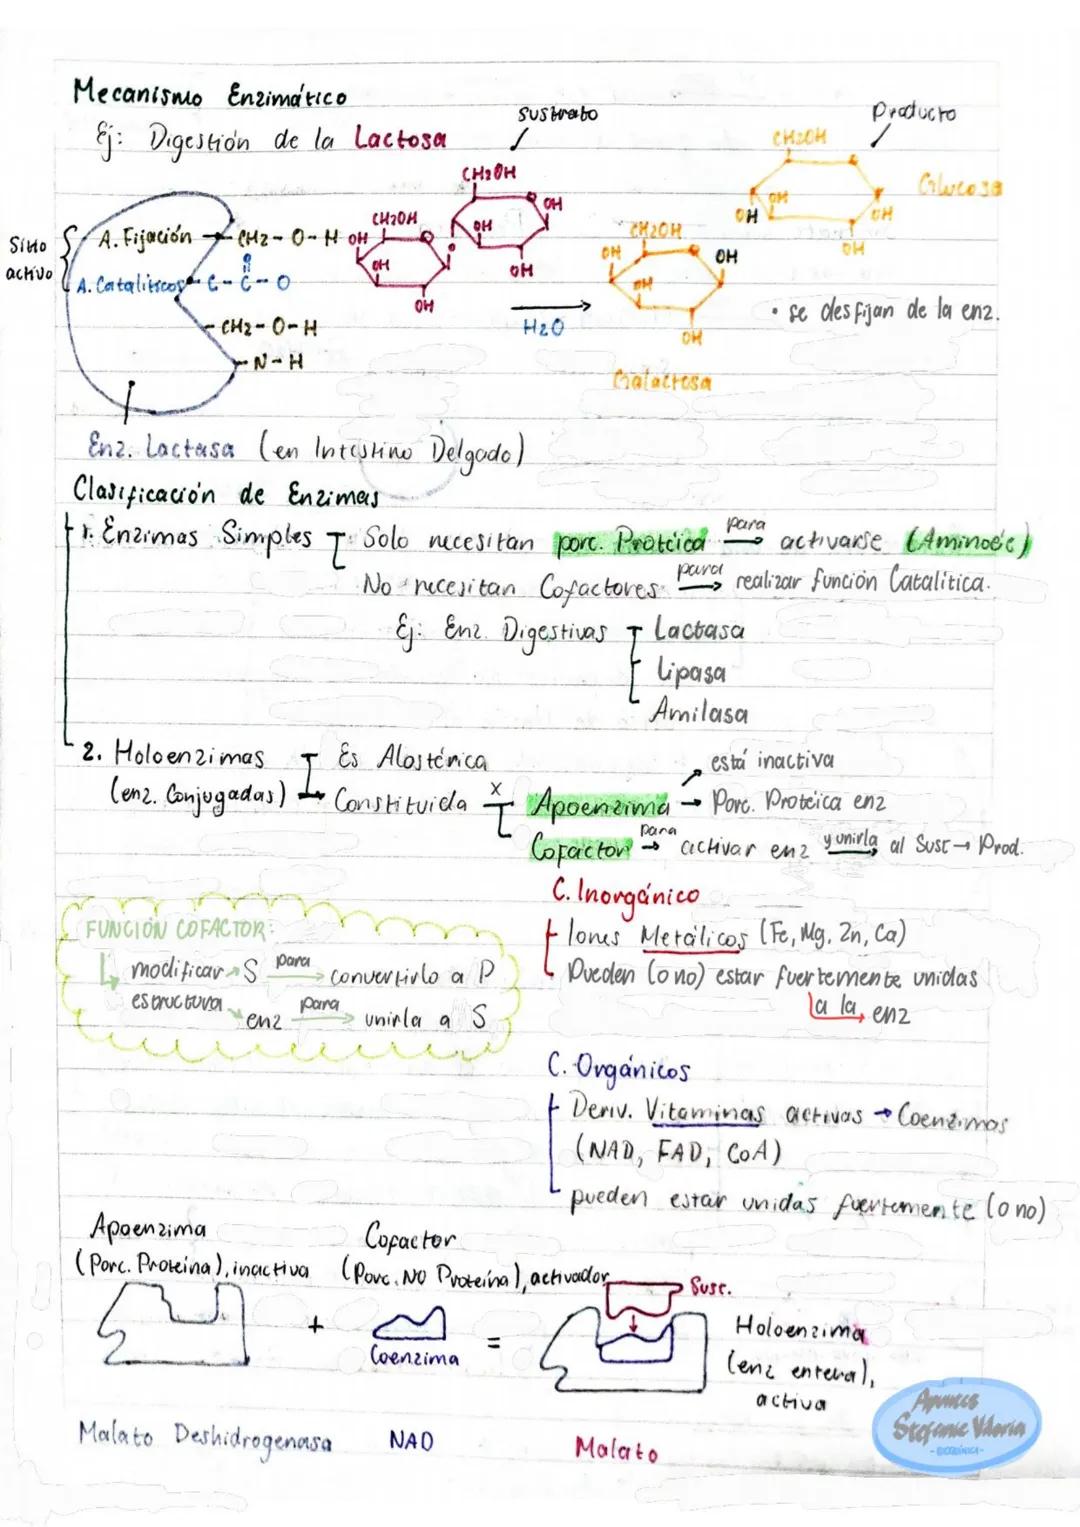 Mecanismo Enzimático
Ej: Digestión de la Lactosa
sustrato
Producto
CH2OH
Glucosa
OH
OH
OH
OH
CH2OH
OH
OH
OH
CH2OH
OH
OH
OH
CH2OH
OH
OH
OH
OH
Sitio activo
A. Fijación → CH2-O-H
A. Catalíticos C-C-O
O
-CH2-O-H
-N-H
H2O
• se desfijan de la enz.
Galactosa
Enz. Lactasa (en Intestino Delgado)
Clasificación de Enzimas
1. Enzimas Simples Solo necesitan porc. Protéica para → activarse (Aminoác)
No necesitan Cofactores para → realizar función Catalítica.
Ej: Enz. Digestivas Lactasa
Lipasa
Amilasa
2. Holoenzimas Es Alostérica
(enz. Conjugadas) Constituida x Apoenzima → está inactiva
→ Porc. Protéica enz
Cofactor para → activar enz y unirla → al Sust → Prod.
C. Inorgánico
Iones Metálicos (Fe, Mg, Zn, Ca)
Pueden (o no) estar fuertemente unidas
a la enz
FUNCIÓN COFACTOR:
modificar S para → convertirlo a P
estructura enz para → unirla a S
C. Orgánicos
Deriv. Vitaminas activas → Coenzimas
(NAD, FAD, CoA)
pueden estar unidas fuertemente (o no)
Apoenzima
(Porc. Proteína), inactiva
Cofactor
(Porc. NO Proteína), activador
Sust.
+
Coenzima
=
Holoenzima
(enz entera),
activa
Malato Deshidrogenasa
NAD
Malato
Apuntes
Stefanie Viloria
- BIOQUÍMICA -